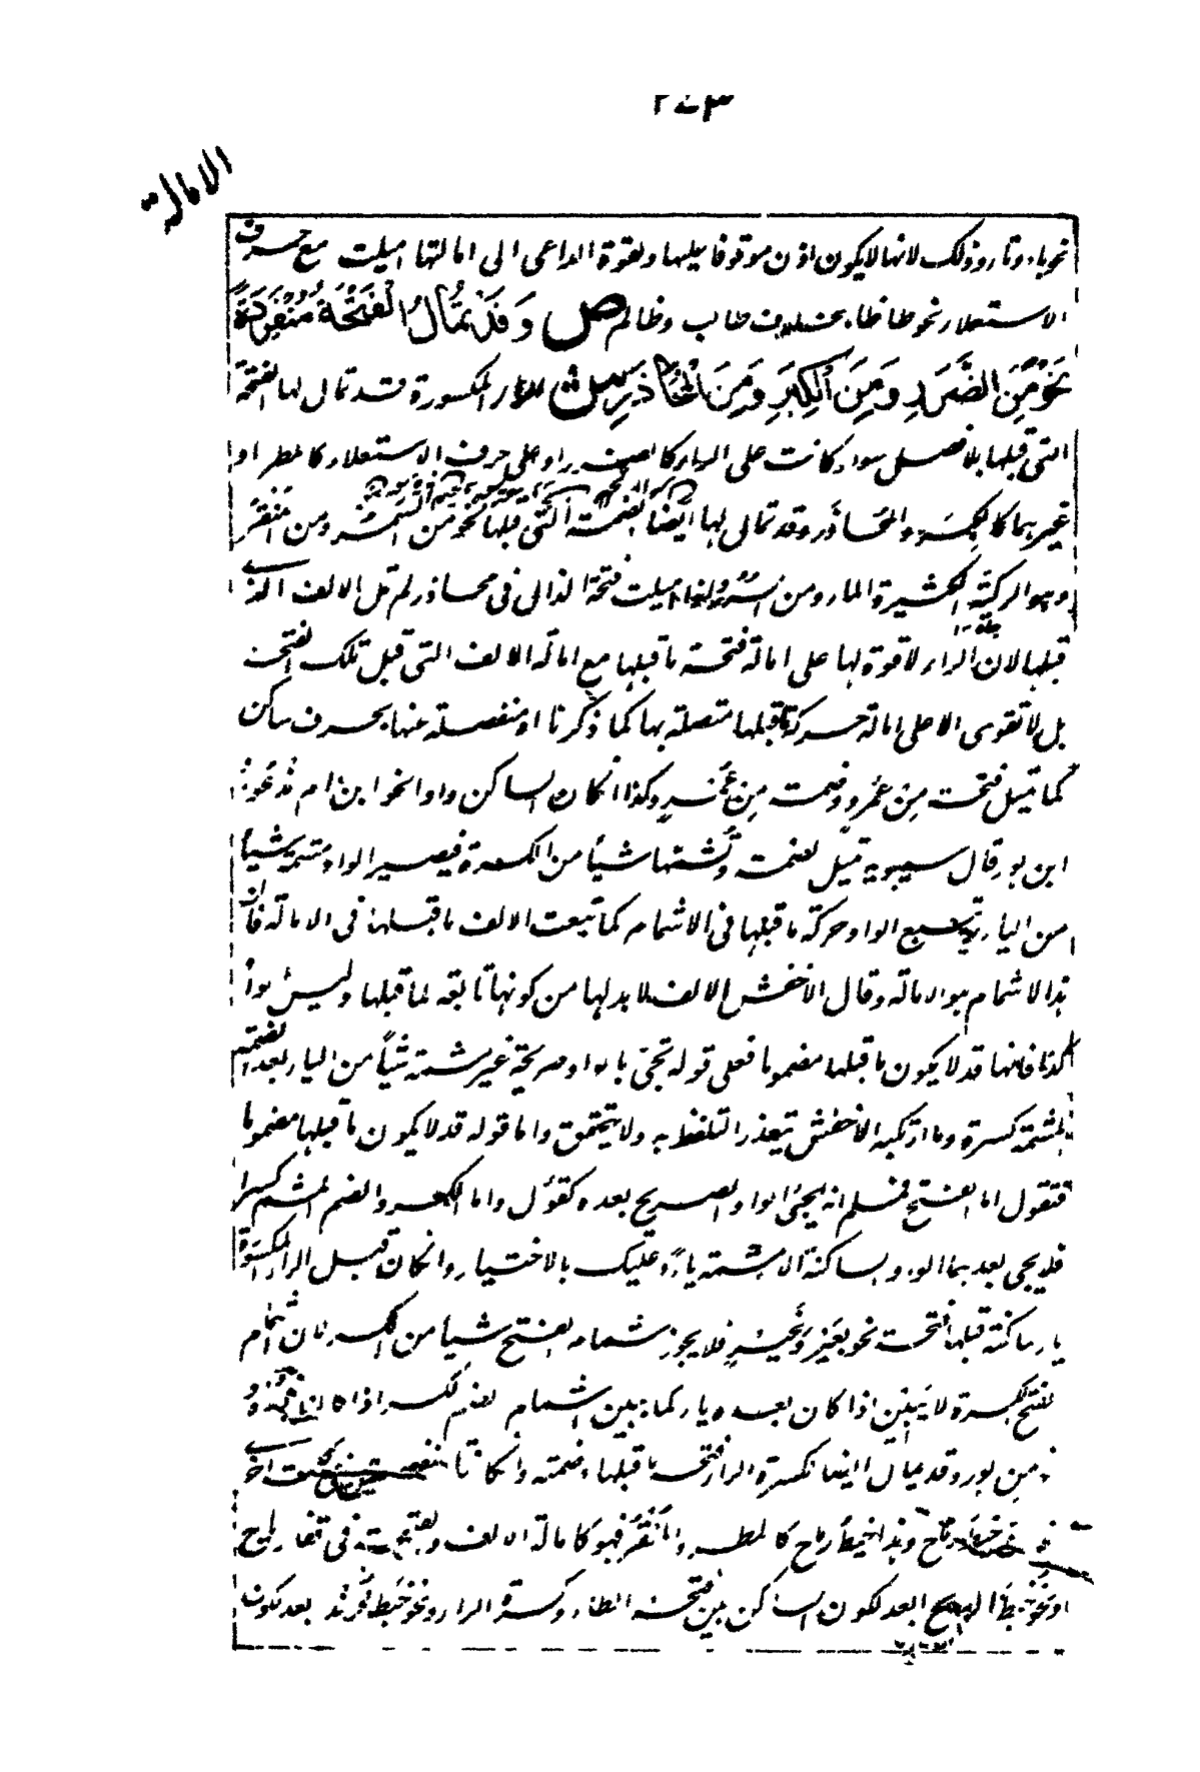 ٢٠٣
الامالة
نحو باء وتاء وذلك لانها لا يكون اذن موقوفا يميلها ولقوة الداعى الى امالتها اميلت مع حرف
الاستعلاء نحو طا ظا بخلاف طالب وظالم ص وَقَدْ تُمَالُ الْفَتْحَةُ مُنْفَرِدَةً
نَحْوُ مِنَ الضَّرَرِ وَمِنَ الْكِبَرِ وَمِنَ الْمُحَاذَرِ ش الراء المكسورة قد تمال لها الفتحة
التى قبلها بلا فصل سواء كانت على الراء كالضرر او على حرف الاستعلاء كالمطر او
غيرهما كالكبر والمحاذر وقد تمالى لها ايضا الضمة التى قبلها نحو من السَّمُر ومن المُنْقُر
وهو الركية الكثيرة الماء ومن السُّرُر واذا اميلت فتحة الذال فى محاذر لم تمل الالف التى
قبلها لان الراء لا قوة لها على امالة فتحة ما قبلها مع امالة الالف التى قبل تلك الفتحة
بل لا تقوى الا على امالة حركة ما قبلها متصلة بها كما ذكرنا او منفصلة عنها بحرف ساكن
كما تميل فتحة مِنْ عَمْرٍو وضمة مِن عُمْرٍ وكذا ان كان الساكن واوا نحو ابن ام مذعور
ابن بور قال سيبويه تميل الضمة وتُشِمّها شيئا من الكسرة فيصير الواو مشمة شيئا
من الياء ويتبع الواو حركة ما قبلها فى الاشمام كما تبعت الالف ما قبلها فى الامالة فان
هذا الاشمام هو الامالة وقال الاخفش الالف لا بد لها من كونها تابعة لما قبلها وليس الواو
كذا فانها قد لا يكون ما قبلها مضموما فعلى قوله تجئ بالواو صريحة غير مشمة شيئا من الياء بعد الضمة
المشمة كسرة وما ارتكبه الاخفش يتعذر التلفظ به ولا يتحقق واما قوله قد لا يكون ما قبلها مضموما
فنقول اما الفتح فمسلم انه يجئ الواو الصريح بعده كقَوْل واما الكسر والضم المشم كسرا
فلا يجئ بعدهما الواو ساكنة الا مشمة ياء وعليك بالاختيار وان كان قبل الراء المكسورة
ياء ساكنة قبلها فتحة نحو بغَيْرٍ وبخَيْرٍ فلا يجوز اشمام الفتح شيئا من الكسر لان اشمام
الفتح الكسرة لا يتبين اذا كان بعده ياء كما يبين اشمام الضم الكسر اذا كان
من بور وقد يمال ايضا لكسرة الراء فتحة ما قبلها وضمته وان كانتا منفصلتين
نحو خبط رياح وهذا خبط رياح كالمطر والمُنْقُر فهو كامالة الالف والفتحة فى قفا رياح
او نحو خبط الريح ابعد لكون الساكن بين فتحة الطاء وكسرة الراء ونحو خبط فرند بعد لكون